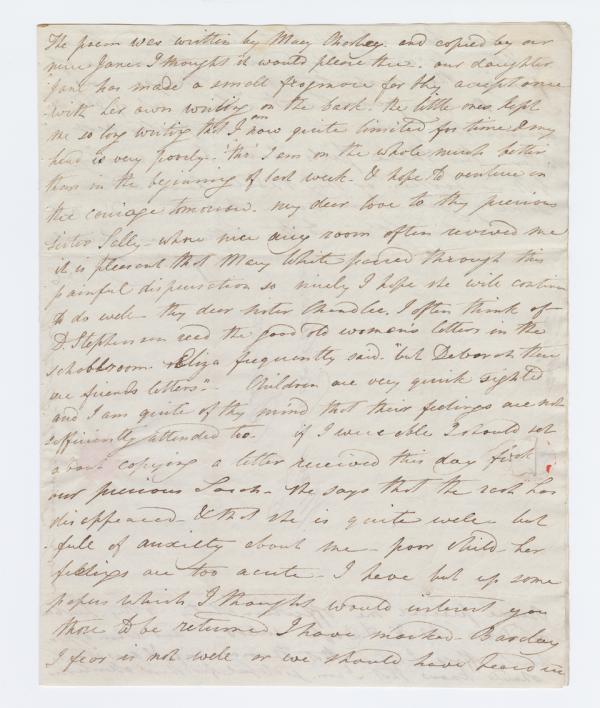 The poem was written by Mary Chorley. and copied by our
niece Jane I thought it would please thee. our daughter
Jane has made a small frogmore for thy acceptance
with her own writing on the back. the little ones kept
me so long writing that I am now quite limited for time & my
head is very poorly. tho' I am on the whole much better
than in the beginning of last week. & hope to venture in
the carriage tomorrow. my dear love to thy precious
sister Sally - whose nice airy room often revived me
it is pleasant that Mary White passed through this
painful dispensation so nicely I hope she will continue
to do well - thy dear sister Chandlee, I often think of -
D. Stephenson read the good old woman's letters in the
schoolroom. Eliza frequently said. "but Deborah these
are friends letters" - Children are very quick sighted
and I am quite of thy mind that their feelings are not
sufficiently attended too. if I were able I should set
about copying a letter received this day from
our precious Sarah - she says that the rash has
disappeared - & that she is quite well - but
full of anxiety about me - poor child her
feelings are too acute - I have put up some
papers which I thought would interest you
those to be returned I have marked - Barclay
I fear is not well or we should have heard